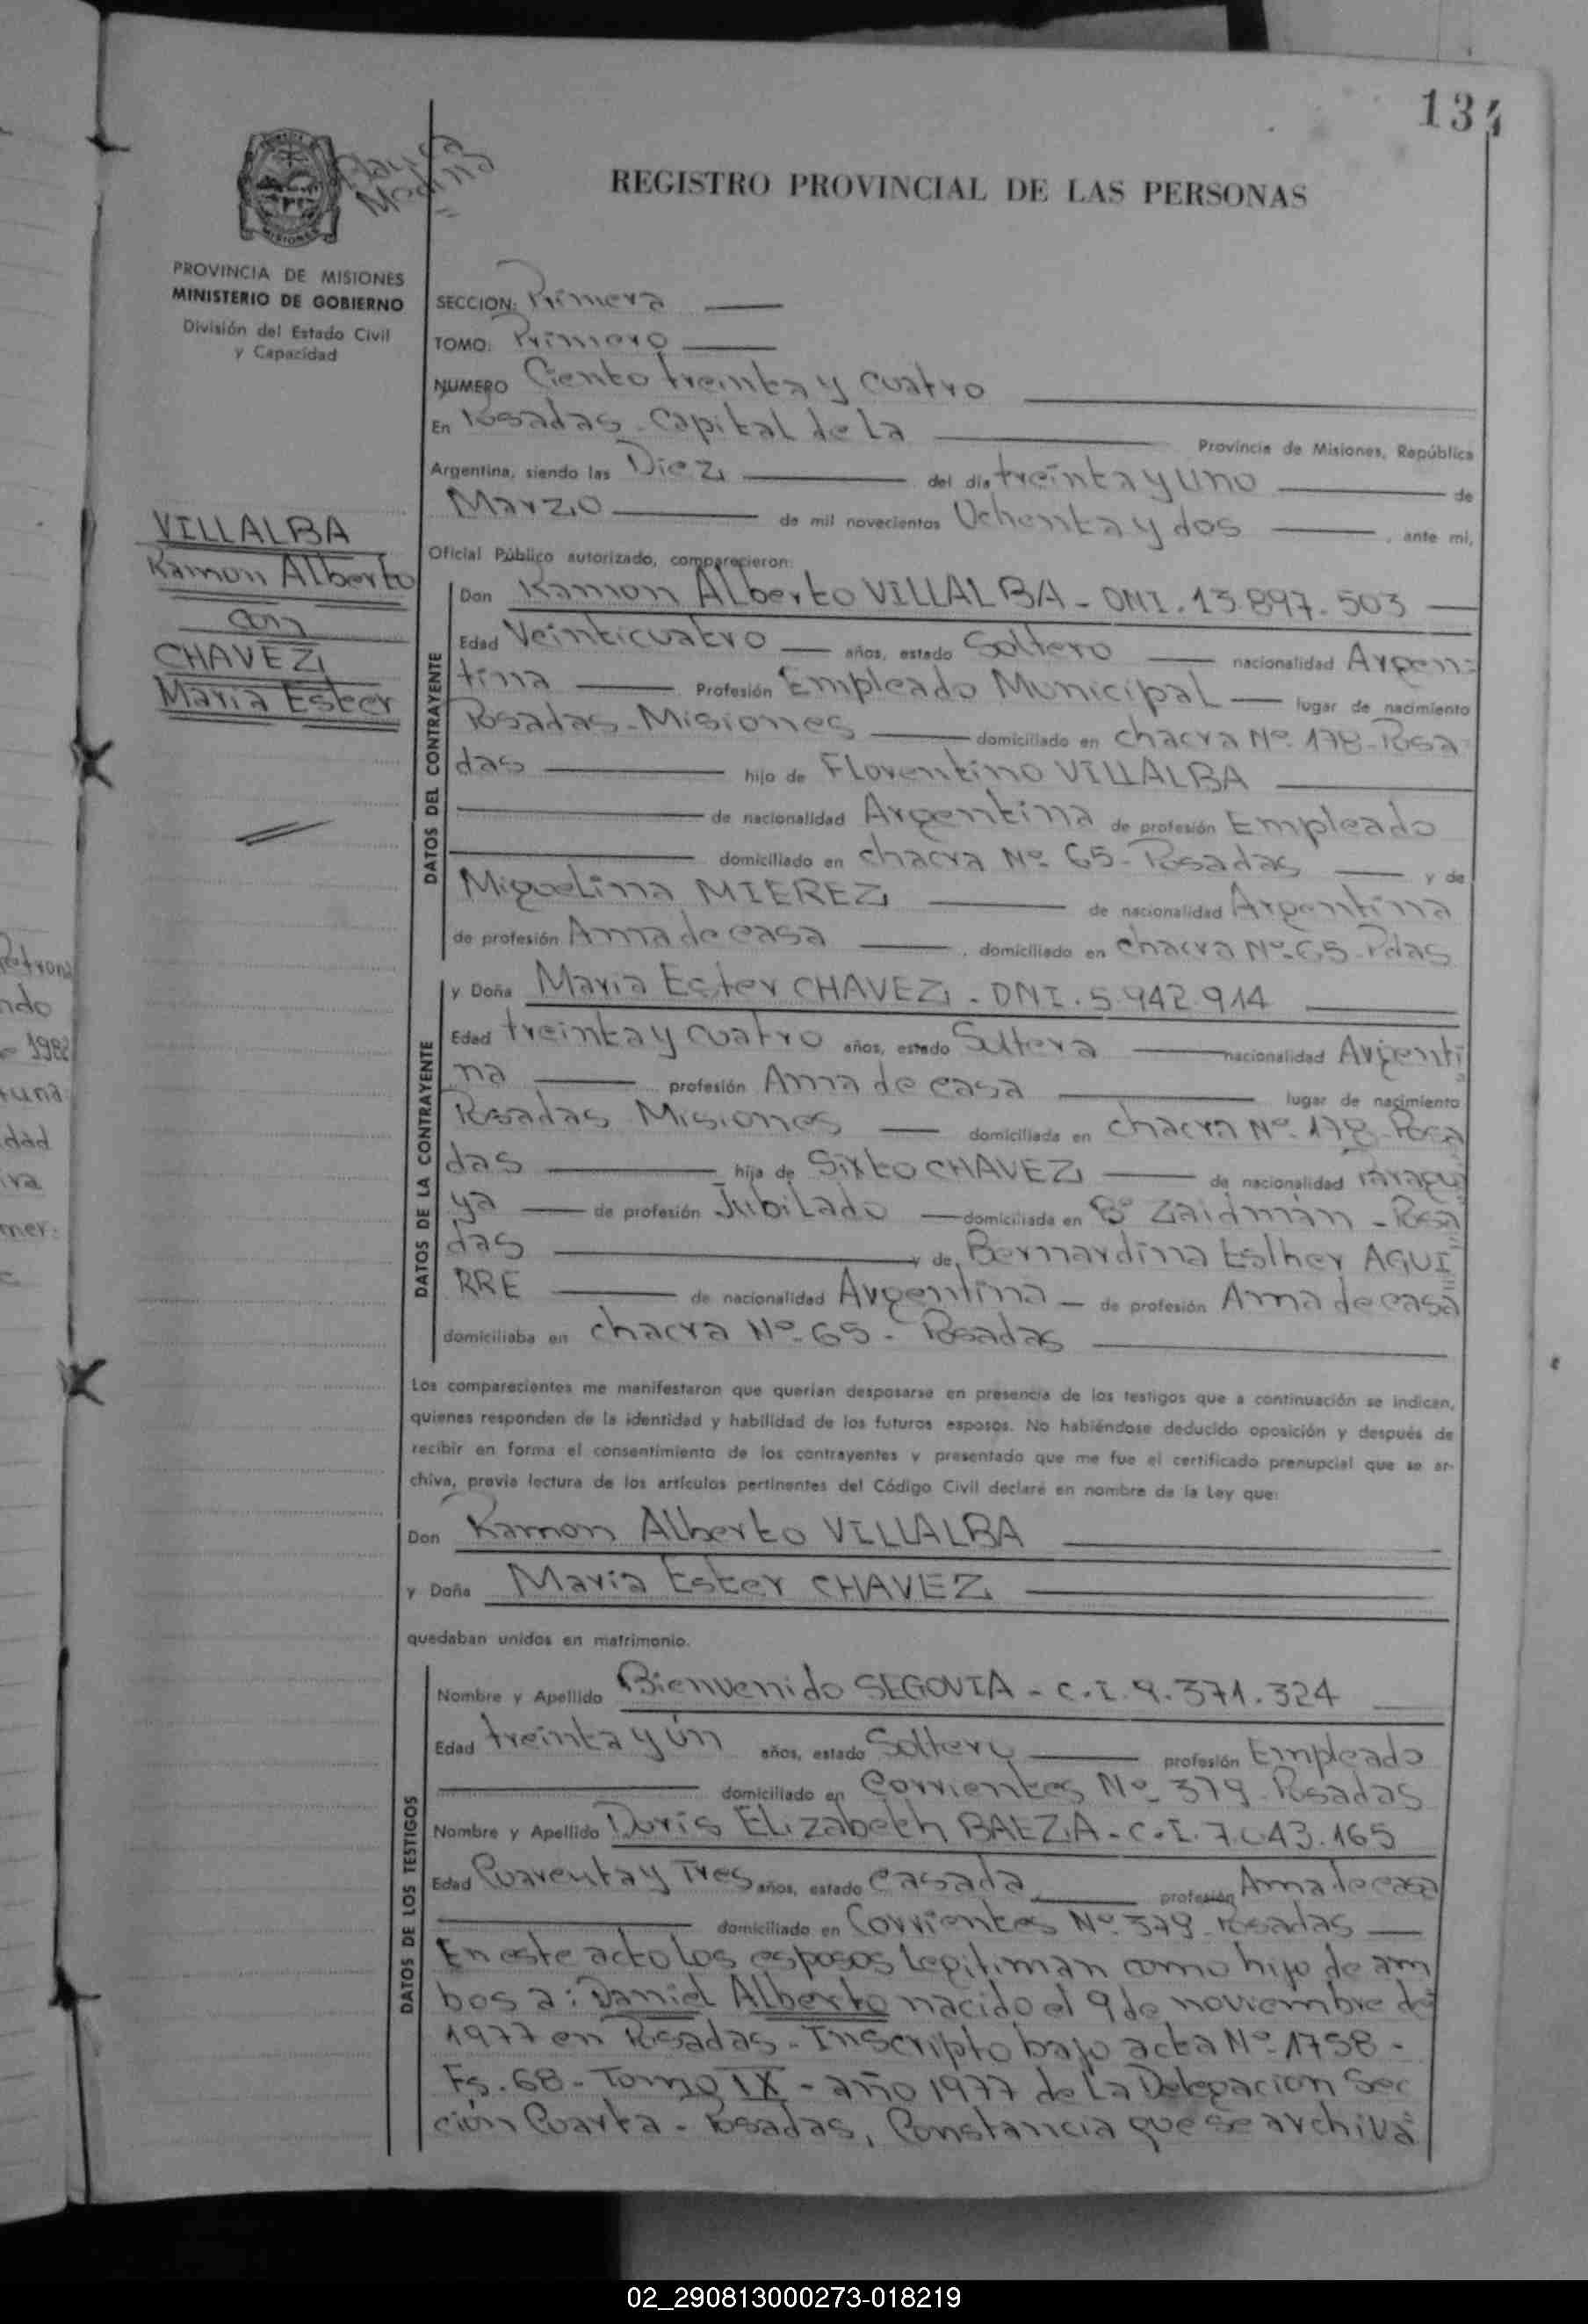 134
REGISTRO PROVINCIAL DE LAS PERSONAS
MISIONES
PROVINCIA DE MISIONES
MINISTERIO DE GOBIERNO
División del Estado Civil
y Capacidad
VILLALBA
Ramon Alberto
con
CHAVEZ
Maria Ester
SECCION: Primera
TOMO: Primero
NUMERO Ciento treinta y cuatro
En Posadas - Capital de La Provincia de Misiones, República
Argentina, siendo las Diez del día treinta y uno de
Marzo de mil novecientos Ochenta y dos, ante mí,
Oficial Público autorizado, comparecieron:
DATOS DEL CONTRAYENTE
Don Ramon Alberto VILLALBA - DNI. 13.897.503
Edad Veinticuatro años, estado Soltero nacionalidad Argen-
tina Profesión Empleado Municipal lugar de nacimiento
Posadas - Misiones domiciliado en chacra Nº 178 - Posa
das hijo de Florentino VILLALBA
de nacionalidad Argentina de profesión Empleado
domiciliado en chacra Nº 65 - Posadas y de
Miguelina MIEREZ de nacionalidad Argentina
de profesión Ama de casa, domiciliado en chacra Nº 65 - Pdas
DATOS DE LA CONTRAYENTE
y Doña Maria Ester CHAVEZ - DNI. 5.942.914
Edad treinta y cuatro años, estado Soltera nacionalidad Argenti
na profesión Ama de casa lugar de nacimiento
Posadas Misiones domiciliada en chacra Nº 178 - Posa
das hija de Sixto CHAVEZ de nacionalidad Paragua
ya de profesión Jubilado domiciliada en Bº Zaidman - Posa
das y de Bernardina Esther AGUI
RRE de nacionalidad Argentina - de profesión Ama de casa
domiciliaba en chacra Nº 65 - Posadas
Los comparecientes me manifestaron que querían desposarse en presencia de los testigos que a continuación se indican,
quienes responden de la identidad y habilidad de los futuros esposos. No habiéndose deducido oposición y después de
recibir en forma el consentimiento de los contrayentes y presentado que me fue el certificado prenupcial que se ar-
chiva, previa lectura de los artículos pertinentes del Código Civil declaré en nombre de la Ley que:
Don Ramon Alberto VILLALBA
y Doña Maria Ester CHAVEZ
quedaban unidos en matrimonio.
DATOS DE LOS TESTIGOS
Nombre y Apellido Bienvenido SEGOVIA - C.I. 9.371.324
Edad treinta y ún años, estado Soltero profesión Empleado
domiciliado en Corrientes Nº 379 - Posadas
Nombre y Apellido Doris Elizabeth BAEZA - C.I. 7.043.165
Edad Cuarenta y Tres años, estado Casada profesión Ama de casa
domiciliado en Corrientes Nº 379 - Posadas
En este acto los esposos legitiman como hijo de am
bos a: Daniel Alberto nacido el 9 de noviembre de
1977 en Posadas - Inscripto bajo acta Nº 1758 -
Fs. 68 - Tomo IX - año 1977 de La Delegacion Sec
ción Cuarta - Posadas, Constancia que se archiva
02_290813000273-018219